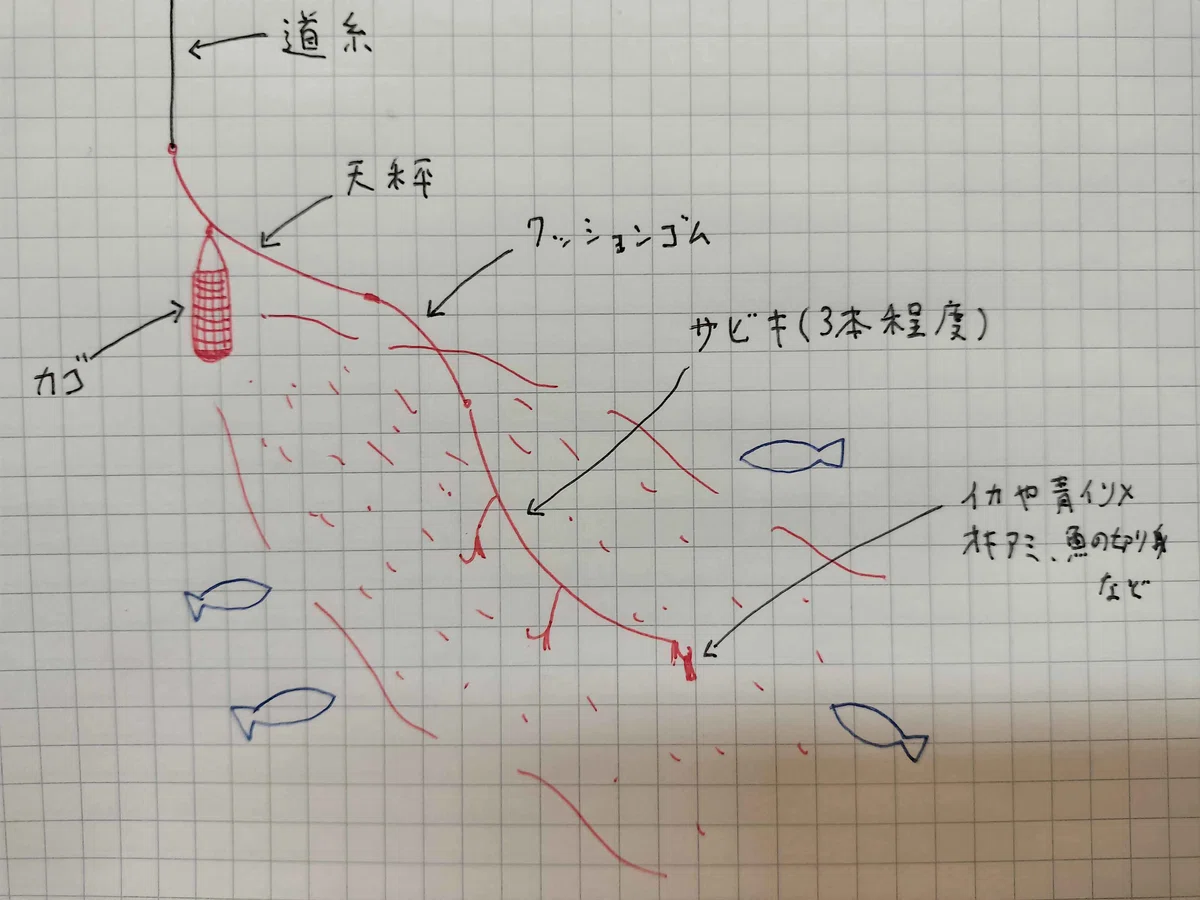 道糸
天秤
クッションゴム
サビキ(3本程度)
カゴ
イカや青イソメ
オキアミ、魚の切り身
など